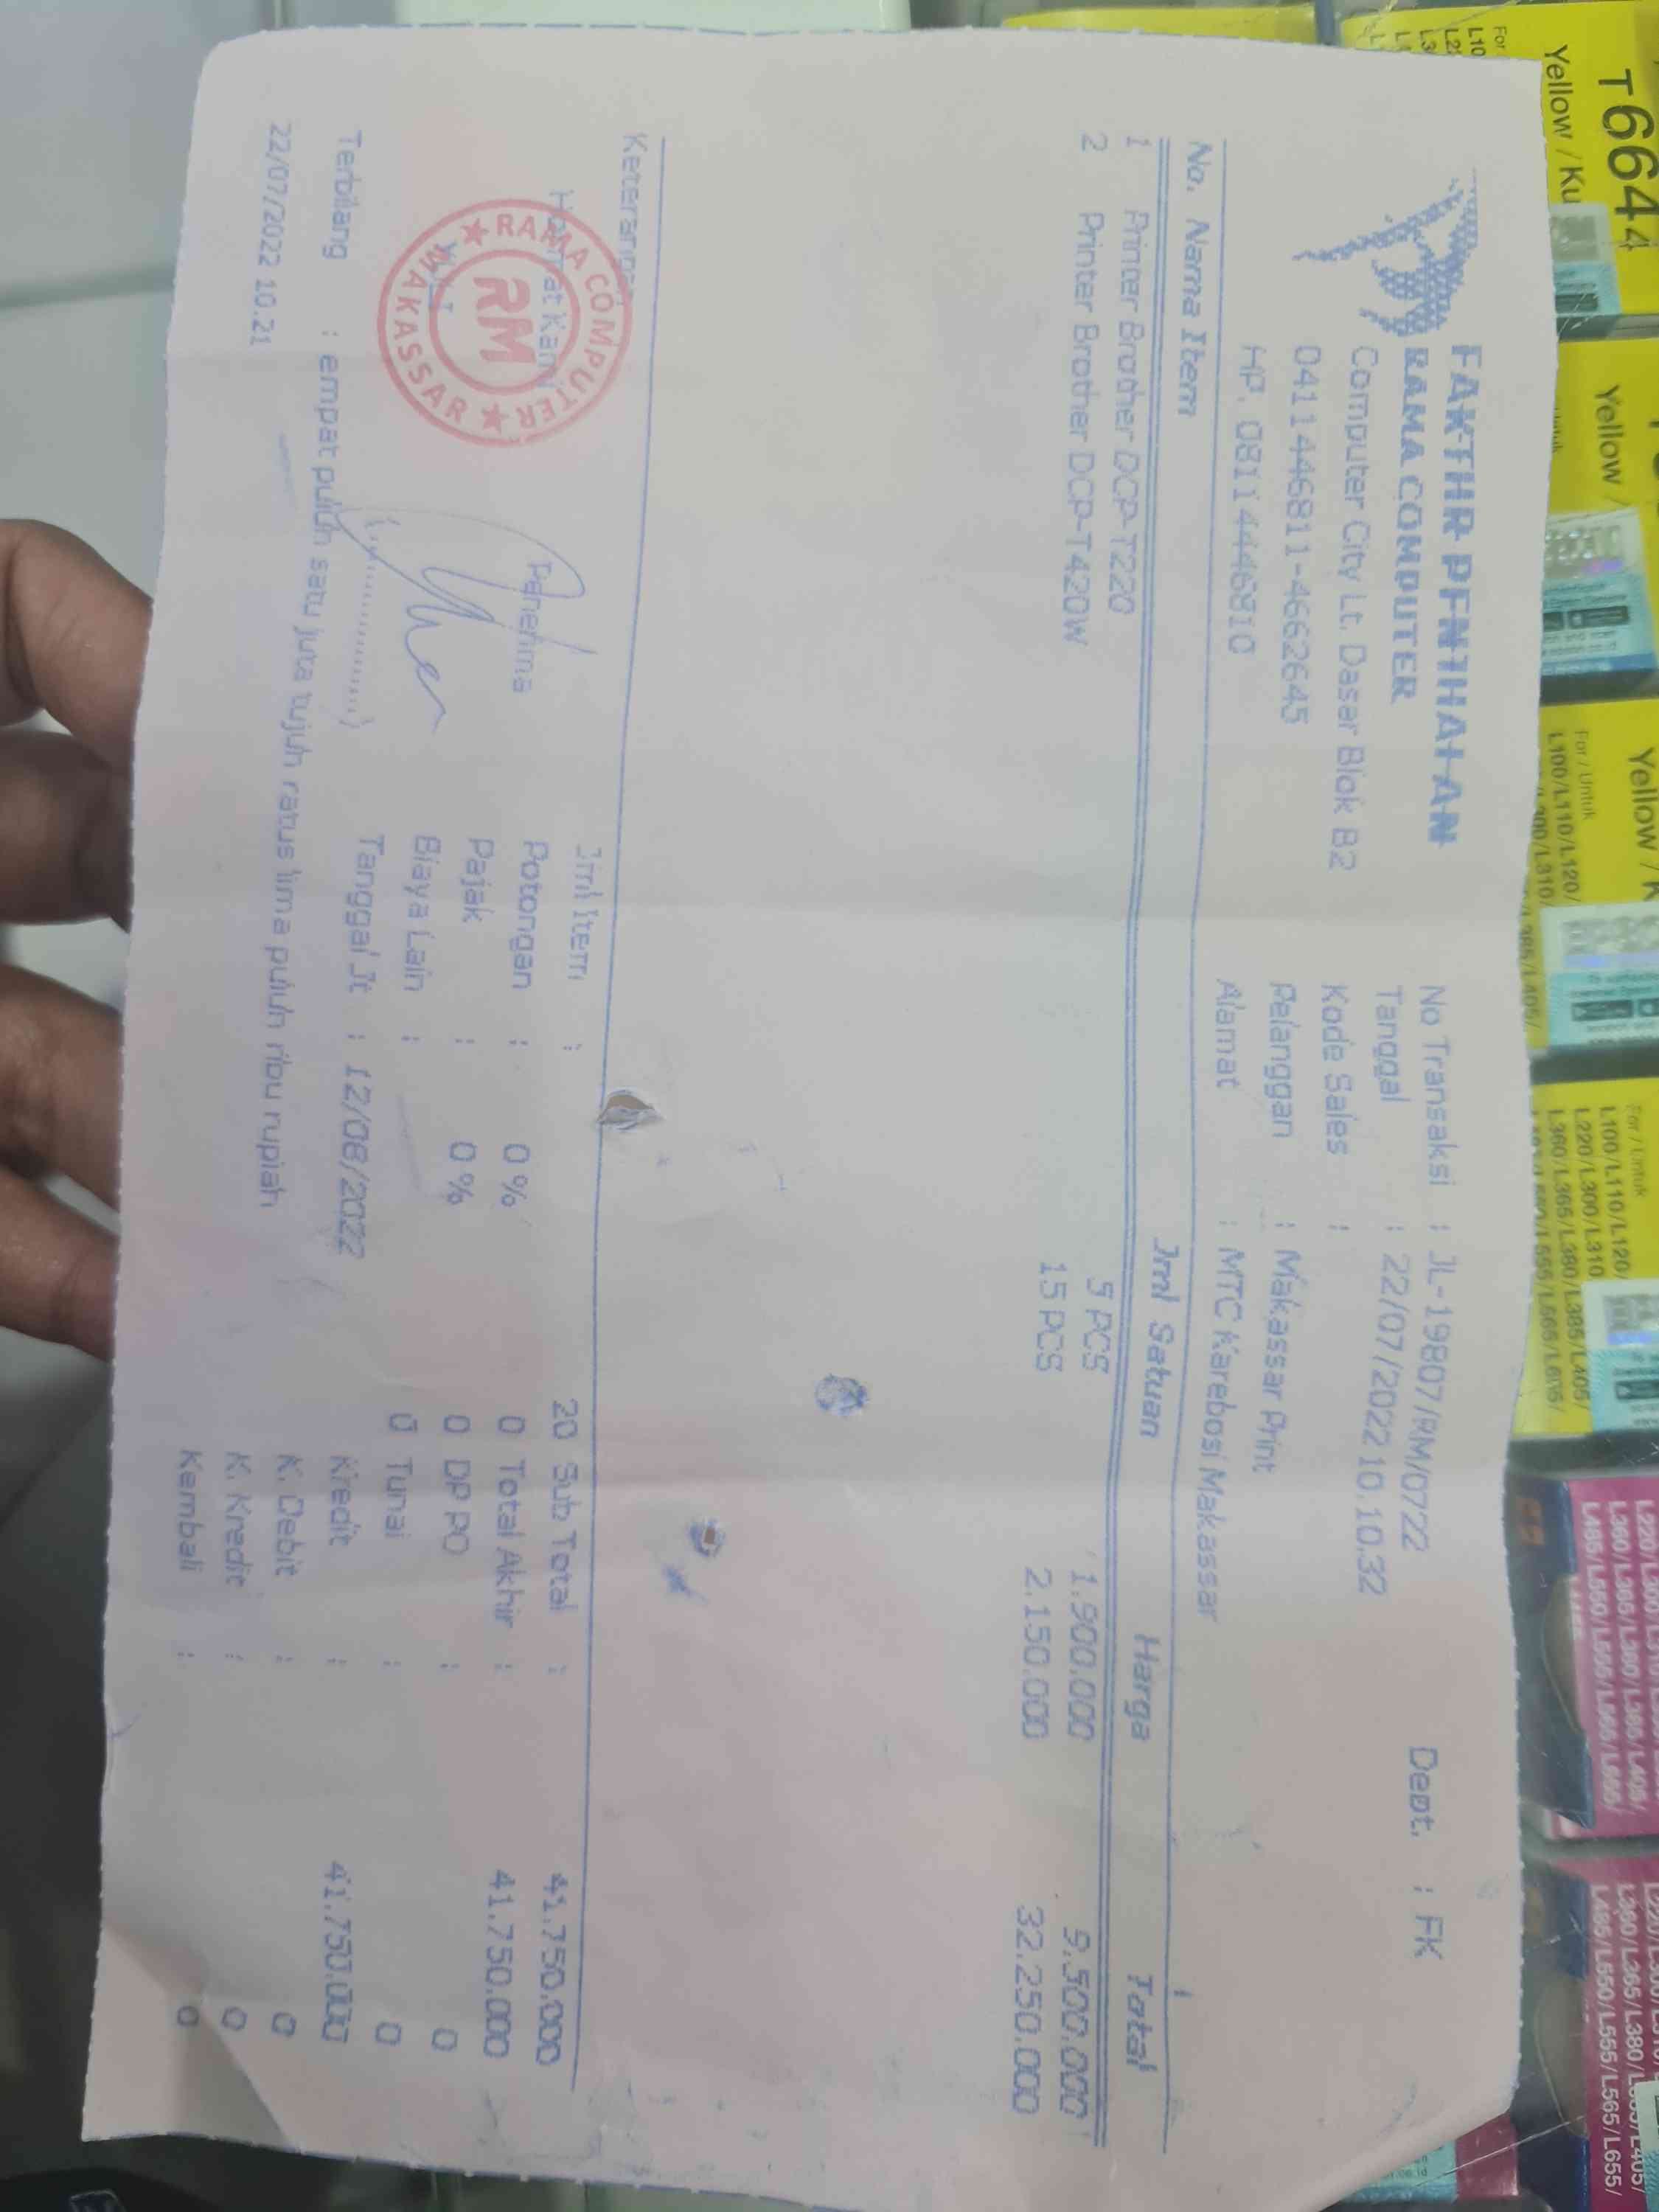 FAKTUR PENJUALAN
RAMA COMPUTER
Computer City Lt. Dasar Blok B2
04114446811-4662645
HP. 08114446810
No Transaksi : JL-19807/RM/0722
Dept. : FK
Tanggal : 22/07/2022 10.10.32
Kode Sales :
Pelanggan : Makassar Print
Alamat : MTC Karebosi Makassar
No. Nama Item Jml Satuan Harga Total
1 Printer Brother DCP-T220 5 PCS 1.900.000 9.500.000
2 Printer Brother DCP-T420W 15 PCS 2.150.000 32.250.000
Keterangan
Hormat Kami
Penerima
(...............)
RAMA COMPUTER
RM
MAKASSAR
Jml Item : 20 Sub Total : 41.750.000
Potongan : 0 % 0 Total Akhir : 41.750.000
Pajak : 0 % 0 DP PO : 0
Biaya Lain : 0 Tunai : 0
Tanggal Jt : 12/08/2022 Kredit : 41.750.000
K. Debit : 0
K. Kredit : 0
Kembali : 0
Terbilang : empat puluh satu juta tujuh ratus lima puluh ribu rupiah
22/07/2022 10.21
T6644
Yellow / Ku
Yellow /
Yellow / K
For / Untuk
L100/L110/L120/
For / Untuk
L100/L110/L120/
L220/L300/L310
L360/L365/L380/L385/L405/
L360/L365/L380/L385/L405/
L485/L550/L555/L565/L655/